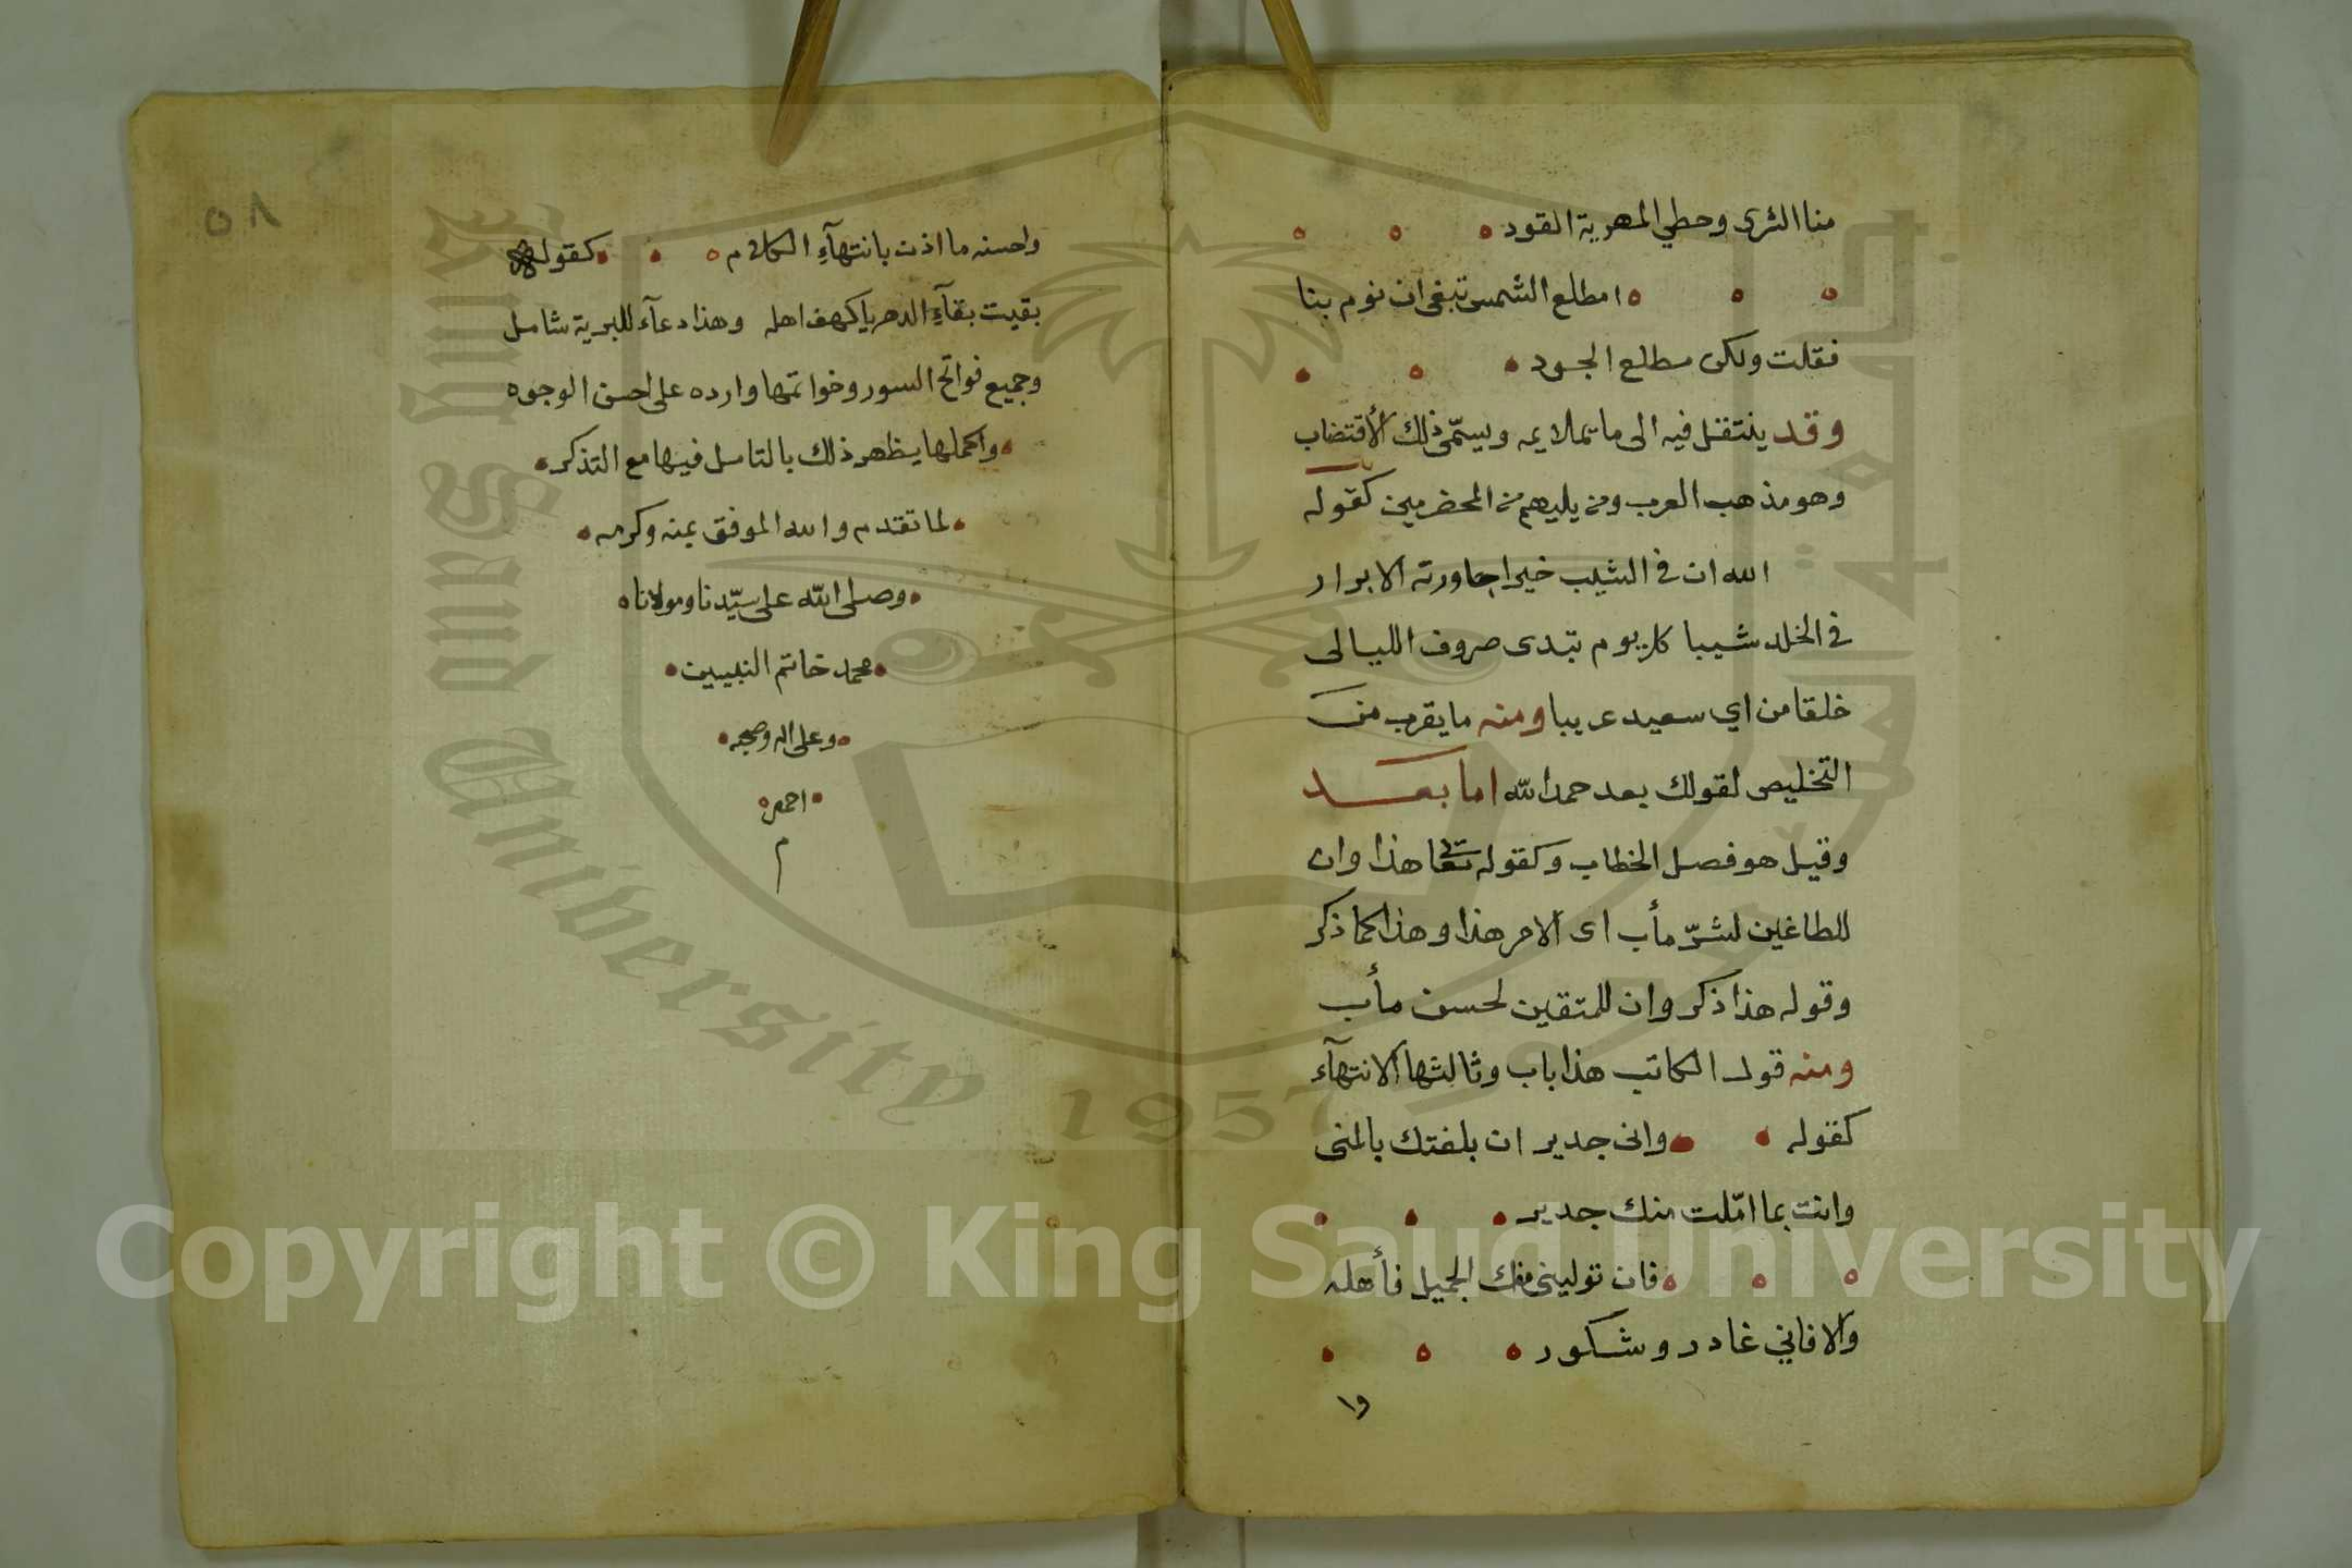 منا الثرى وحطي المهرية القود
امطلع الشمس تبغى ان نوم بنا
فقلت ولكن مطلع الجود
وقد ينتقل فيه الى ما يملايمه ويسمّى ذلك الأقتضاب
وهو مذهب العرب ومن يليهم من المخضرمين كقوله
الله ان في الشيب خيرا جاورته الابرار
في الخلد شيبا كل يوم تبدى صروف الليالى
خلقا من اي سعيد عريبا ومنه ما يقرب من
التخليص لقولك بعد حمد الله اما بعد
وقيل هو فصل الخطاب وكقوله تعا هذا وان
للطاغين لشرّ مأب اى الامر هذا وهذا كما ذكر
وقوله هذا ذكر وان للمتقين لحسن مأب
ومنه قول الكاتب هذا باب وثالثها الانتهآء
كقوله وانى جدير ان بلغتك بالمنى
وانت بما امّلت منك جدير
فان تولينى منك الجميل فأهله
والا فاني غادر وشكور
وا
٥٨
واحسنه ما اذن بانتهآءِ الكلام كقوله
بقيت بقآءِ الدهر يا كهف اهله وهذا دعآء للبرية شامل
وجميع فواتح السور وخواتمها وارده على احسن الوجوه
واكملها يظهر ذلك بالتامل فيها مع التذكر
لما تقدم والله الموفق بمنه وكرمه
وصلى الله على سيّدنا ومولانا
محمد خاتم النبيين
وعلى اله وصحبه
م
King Saud University
1957
Copyright © King Saud University